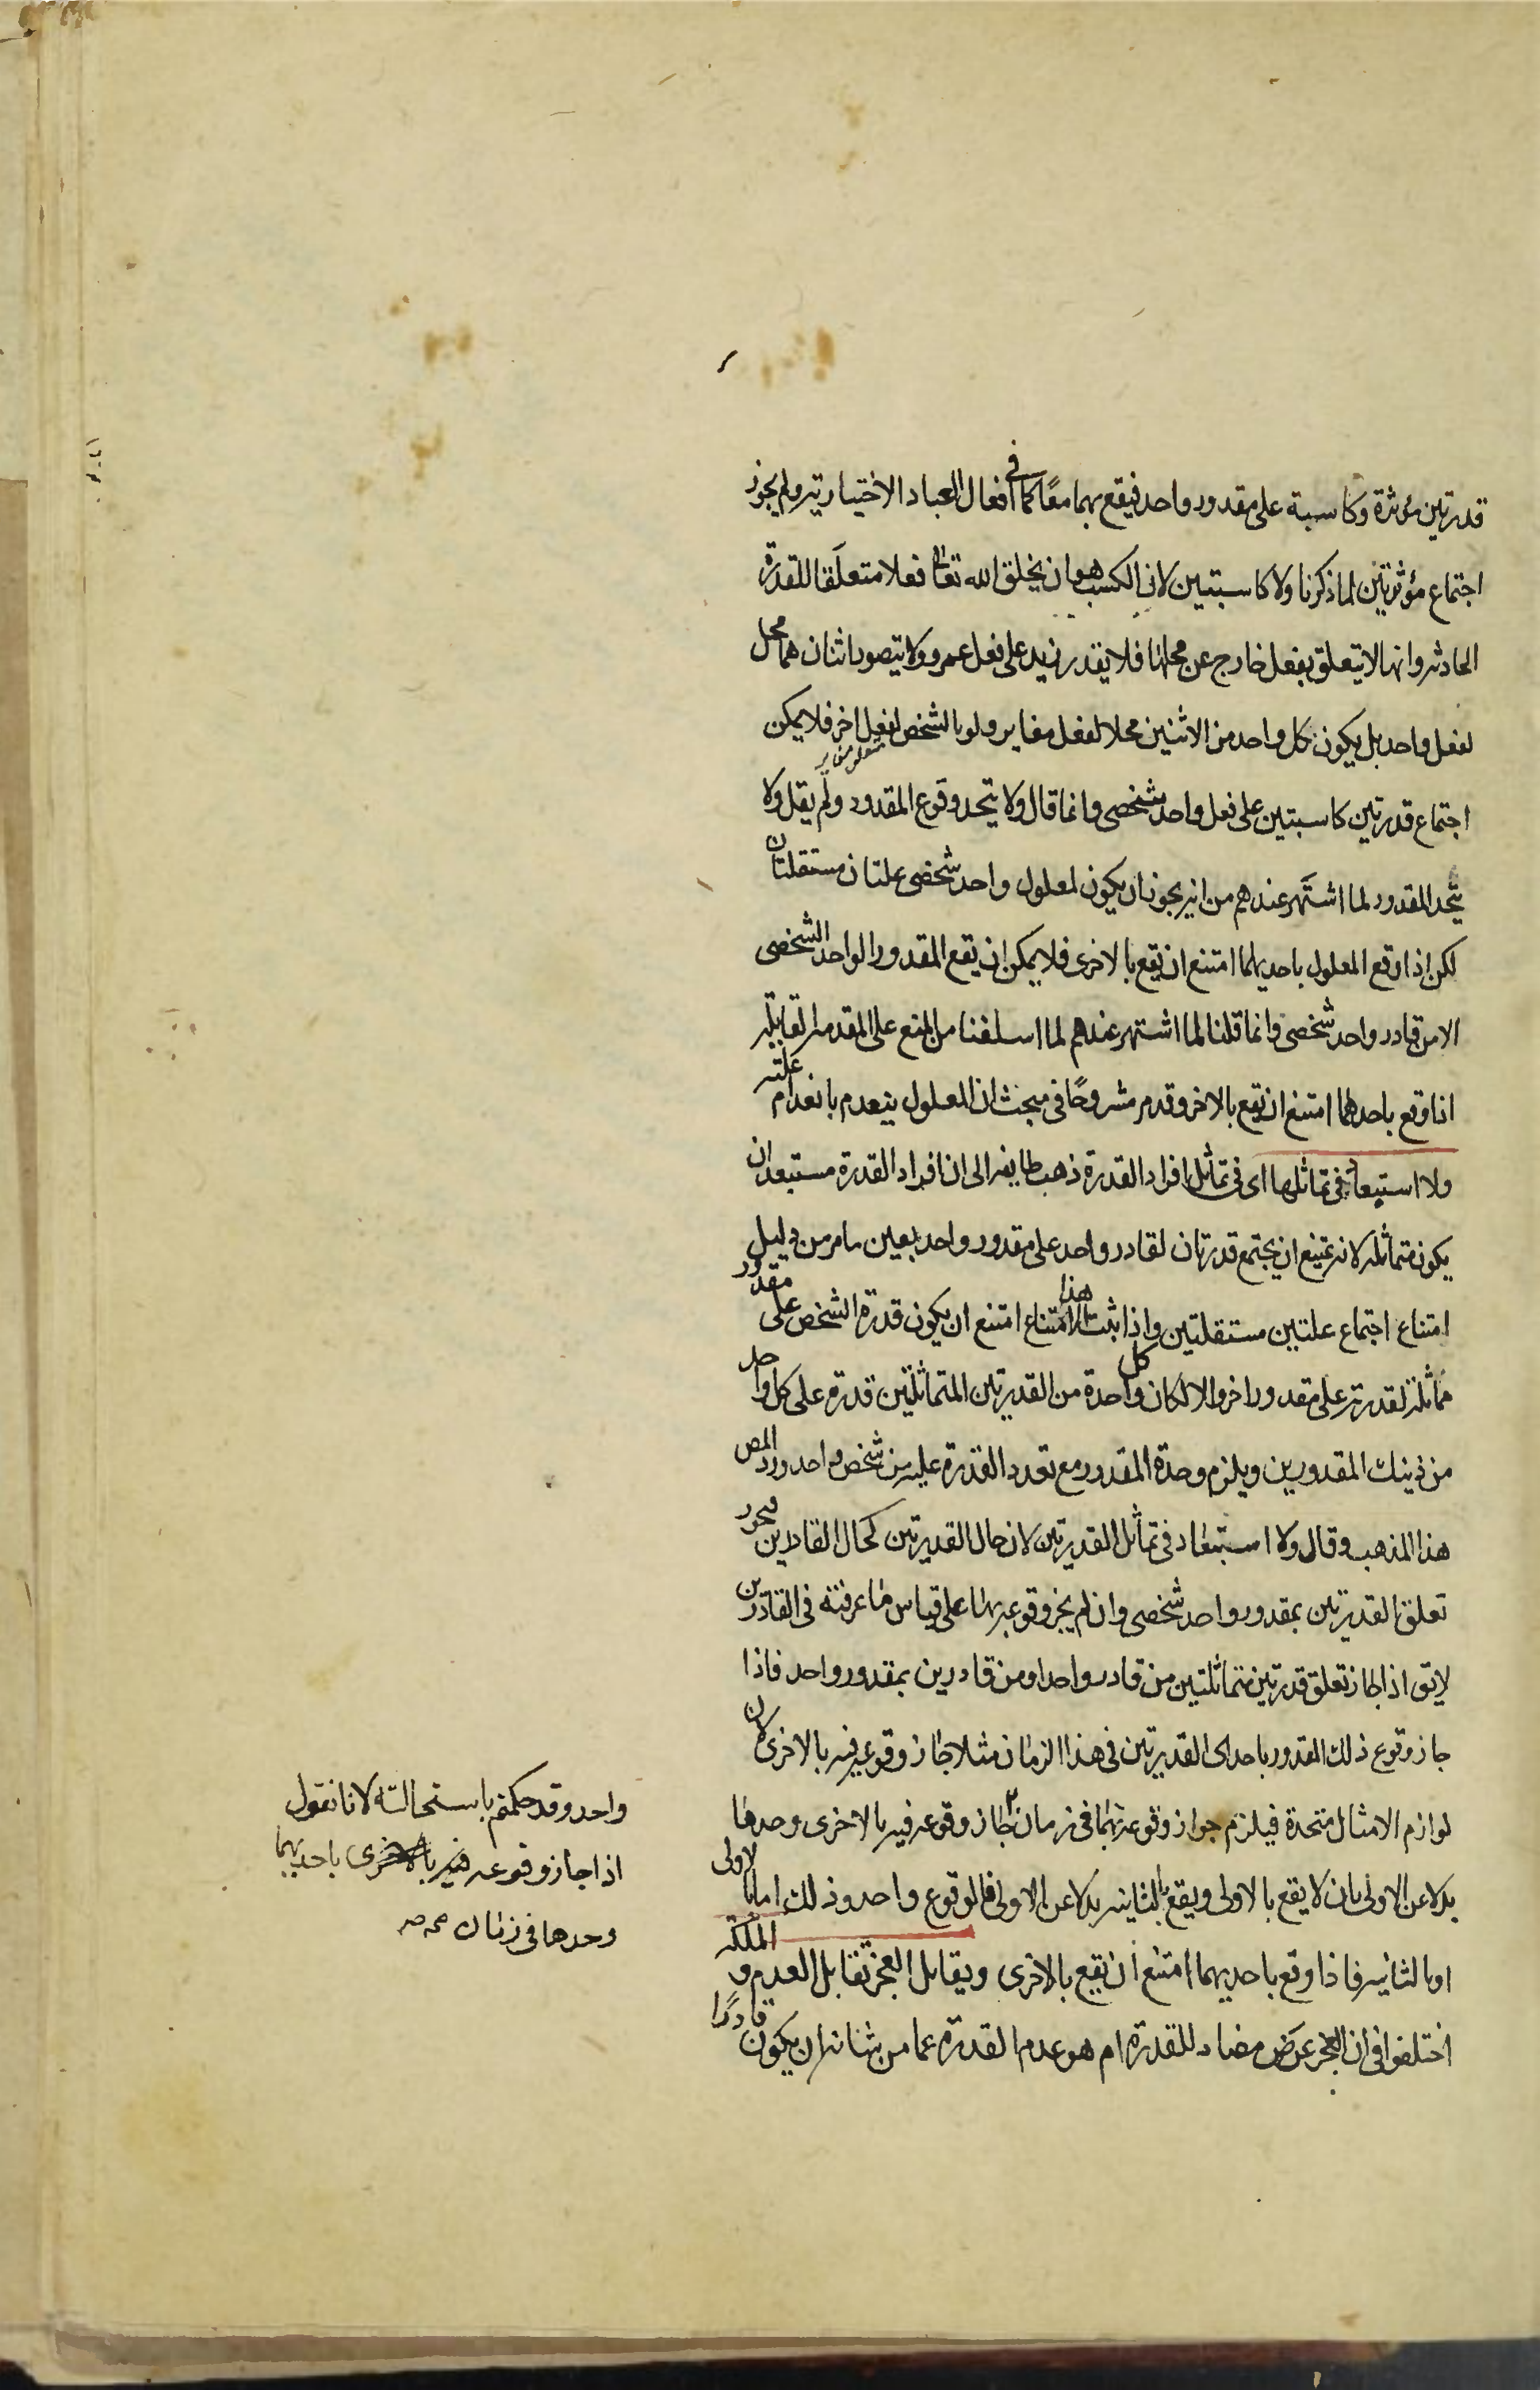 قدرتين مؤثرة وكاسبة على مقدور واحد فيقع بهما معًا كما في افعال العباد الاختيارية ولم يجوز
اجتماع مؤثرتين لما ذكرنا ولا كاسبتين لان الكسب هو ان يخلق الله تعالى فعلا متعلقا للقدرة
الحادثه وانها لا يتعلق بفعل خارج عن محلها فلا يقدر زيد على فعل عمرو ولا يتصور اثنان هما محل
لفعل واحد بل يكون كل واحد من الاثنين محلا لفعل مغاير ولو بالشخص لفعل اخر فلا يمكن
اجتماع قدرتين كاسبتين على فعل واحد شخصى وانما قال ولا يتحد وقوع المقدور ولم يقل ولا
يتحد المقدور لما اشتهر عندهم من انه يجوز ان يكون لمعلول واحد شخصى علتان مستقلتان
لكن اذا وقع المعلول باحديهما امتنع ان يقع بالاخرى فلا يمكن ان يقع المقدور الواحد الشخصى
الا من قادر واحد شخصى وانما قلنا لما اشتهر عندهم لما اسلفنا من المنع على المقدمة القايلة
اذا وقع باحدهما امتنع ان يقع بالاخر وقد مر مشروحًا فى مبحث ان المعلول ينعدم بانعدام علته
ولا استبعاد فى تماثلها اى فى تماثل افراد القدرة ذهب طايفه الى ان افراد القدرة مستبعد ان
يكون متماثلة لانه يمتنع ان يجتمع قدرتان لقادر واحد على مقدور واحد بعين ما مر من دليل
امتناع اجتماع علتين مستقلتين واذا ثبت هذا الامتناع امتنع ان يكون قدرة الشخص على مقدور
مماثلة لقدرته على مقدور اخر والا لكان كل واحدة من القدرتين المتماثلتين قدرة على كل واحد
من ذينك المقدورين ويلزم وحدة المقدور مع تعدد القدرة عليه من شخص واحد ورد المص
هذا المذهب وقال ولا استبعاد فى تماثل القدرتين لان حال القدرتين كحال القادرين فيجوز
تعلق القدرتين بمقدور واحد شخصى وان لم يجز وقوعه بهما على قياس ما عرفته فى القادرين
لا يق اذا جاز تعلق قدرتين متماثلتين من قادر واحد او من قادرين بمقدور واحد فاذا
جاز وقوع ذلك المقدور باحدى القدرتين فى هذا الزمان مثلا جاز وقوعه فيه بالاخرى لان
لوازم الامثال متحدة فيلزم جواز وقوعه بهما فى زمان جاز وقوعه فيه بالاخرى وحدها
بدلا عن الاولى بان لا يقع بالاولى ويقع بالثانيه بدلا عن الاولى فالوقوع واحد وذلك اما بالاولى
او بالثانيه فاذا وقع باحديهما امتنع ان يقع بالاخرى ويقابل العجز تقابل العدم و الملكه
اختلفوا فى ان العجز عرض مضاد للقدرة ام هو عدم القدرة عما من شانه ان يكون قادرًا
واحد وقد حكمتم باستحالته لانا نقول
اذا جاز وقوعه فيه باحديهما
وحدها فى زمان صح